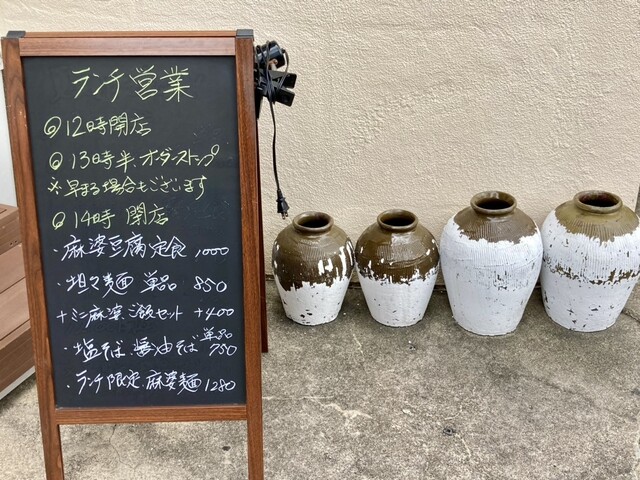 ランチ営業
◎12時開店
◎13時半、オーダーストップ
※早まる場合もございます
◎14時 閉店
・麻婆豆腐定食 1,000
・坦々麺 単品 850
+ミニ麻婆ご飯セット +400
・塩そば、醤油そば 単品 750
・ランチ限定、麻婆麺 1280